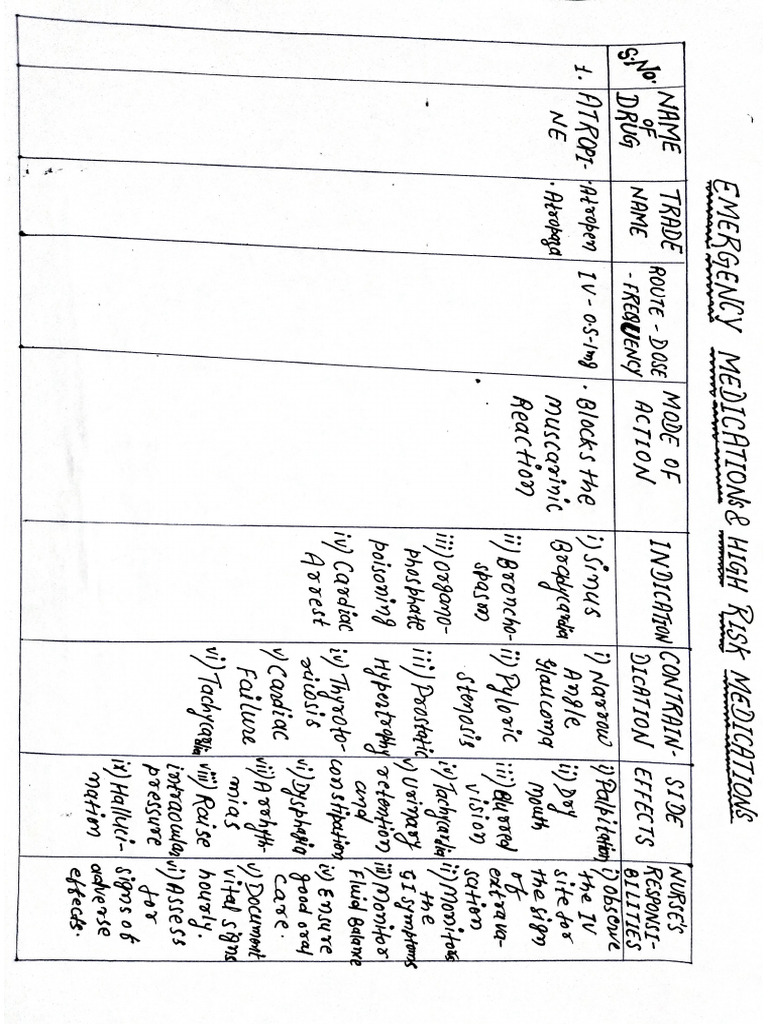 EMERGENCY MEDICATIONS & HIGH RISK MEDICATIONS
S.No.
NAME
OF
DRUG
TRADE
NAME
ROUTE - DOSE
- FREQUENCY
MODE OF
ACTION
INDICATION
CONTRAIN-
DICATION
SIDE
EFFECTS
NURSE'S
RESPONSI-
BILITIES
1.
ATROPI-
NE
• Atropen
• Atropaga
IV - 0.5-1mg
• Blocks the
muscarinic
Reaction
i) Sinus
Bradycardia
ii) Broncho-
spasm
iii) Organo-
phosphate
poisoning
iv) Cardiac
Arrest
i) Narrow
Angle
Glaucoma
ii) Pyloric
stenosis
iii) Prostatic
Hypertrophy
iv) Thyroto-
xicosis
v) Cardiac
Failure
vi) Tachycardia
i) Palpitation
ii) Dry
mouth
iii) Blurred
vision
iv) Tachycardia
v) Urinary
retention
and
constipation
vi) Dysphagia
vii) Arrhyth-
mias
viii) Raise
intraocular
pressure
ix) Halluci-
nation
i) Observe
the IV
site for
the sign
of
extrava-
sation
ii) Monitor
the
GI symptoms
iii) Monitor
Fluid Balance
iv) Ensure
good oral
care.
v) Document
vital signs
hourly.
vi) Assess
for
signs of
adverse
effects.